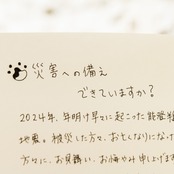 災害への備え
できていますか？
2024年、年明け早々に起こった能登半
地震。被災した方々、お亡くなりになっ
方々に、お見舞い、お悔やみ申し上げま